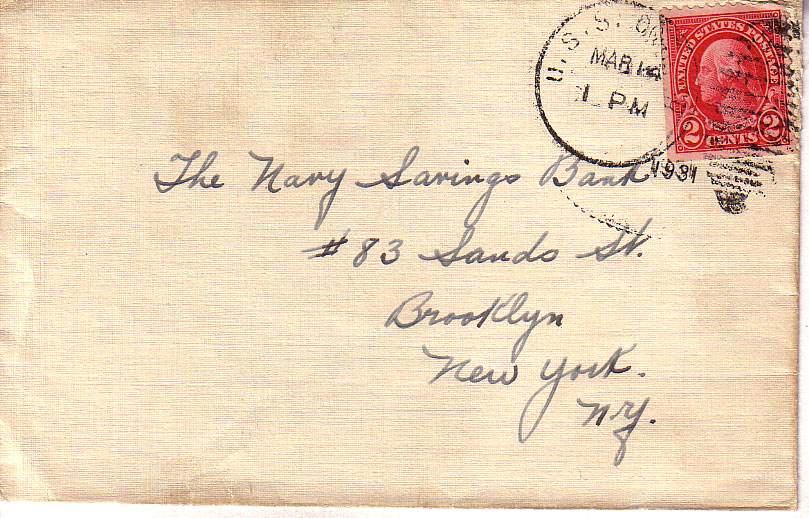 U.S.S.
MAR 14
1 PM
1931
UNITED STATES POSTAGE
2 CENTS 2
The Navy Savings Bank
#83 Sands St.
Brooklyn
New York.
N.Y.